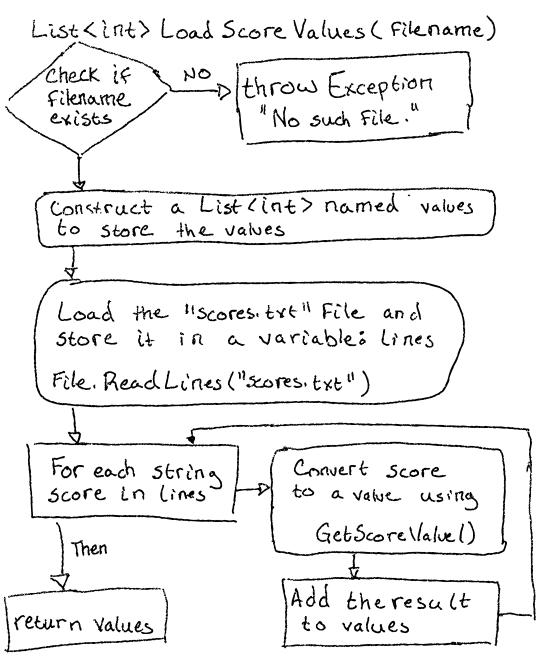 List<int> Load Score Values(filename)
Check if
filename
exists
NO
throw Exception
"No such file."
Construct a List<int> named values
to store the values
Load the "scores.txt" File and
store it in a variable: lines
File.ReadLines("scores.txt")
For each string
score in lines
Convert score
to a value using
GetScoreValue()
Then
Add the result
to values
return values